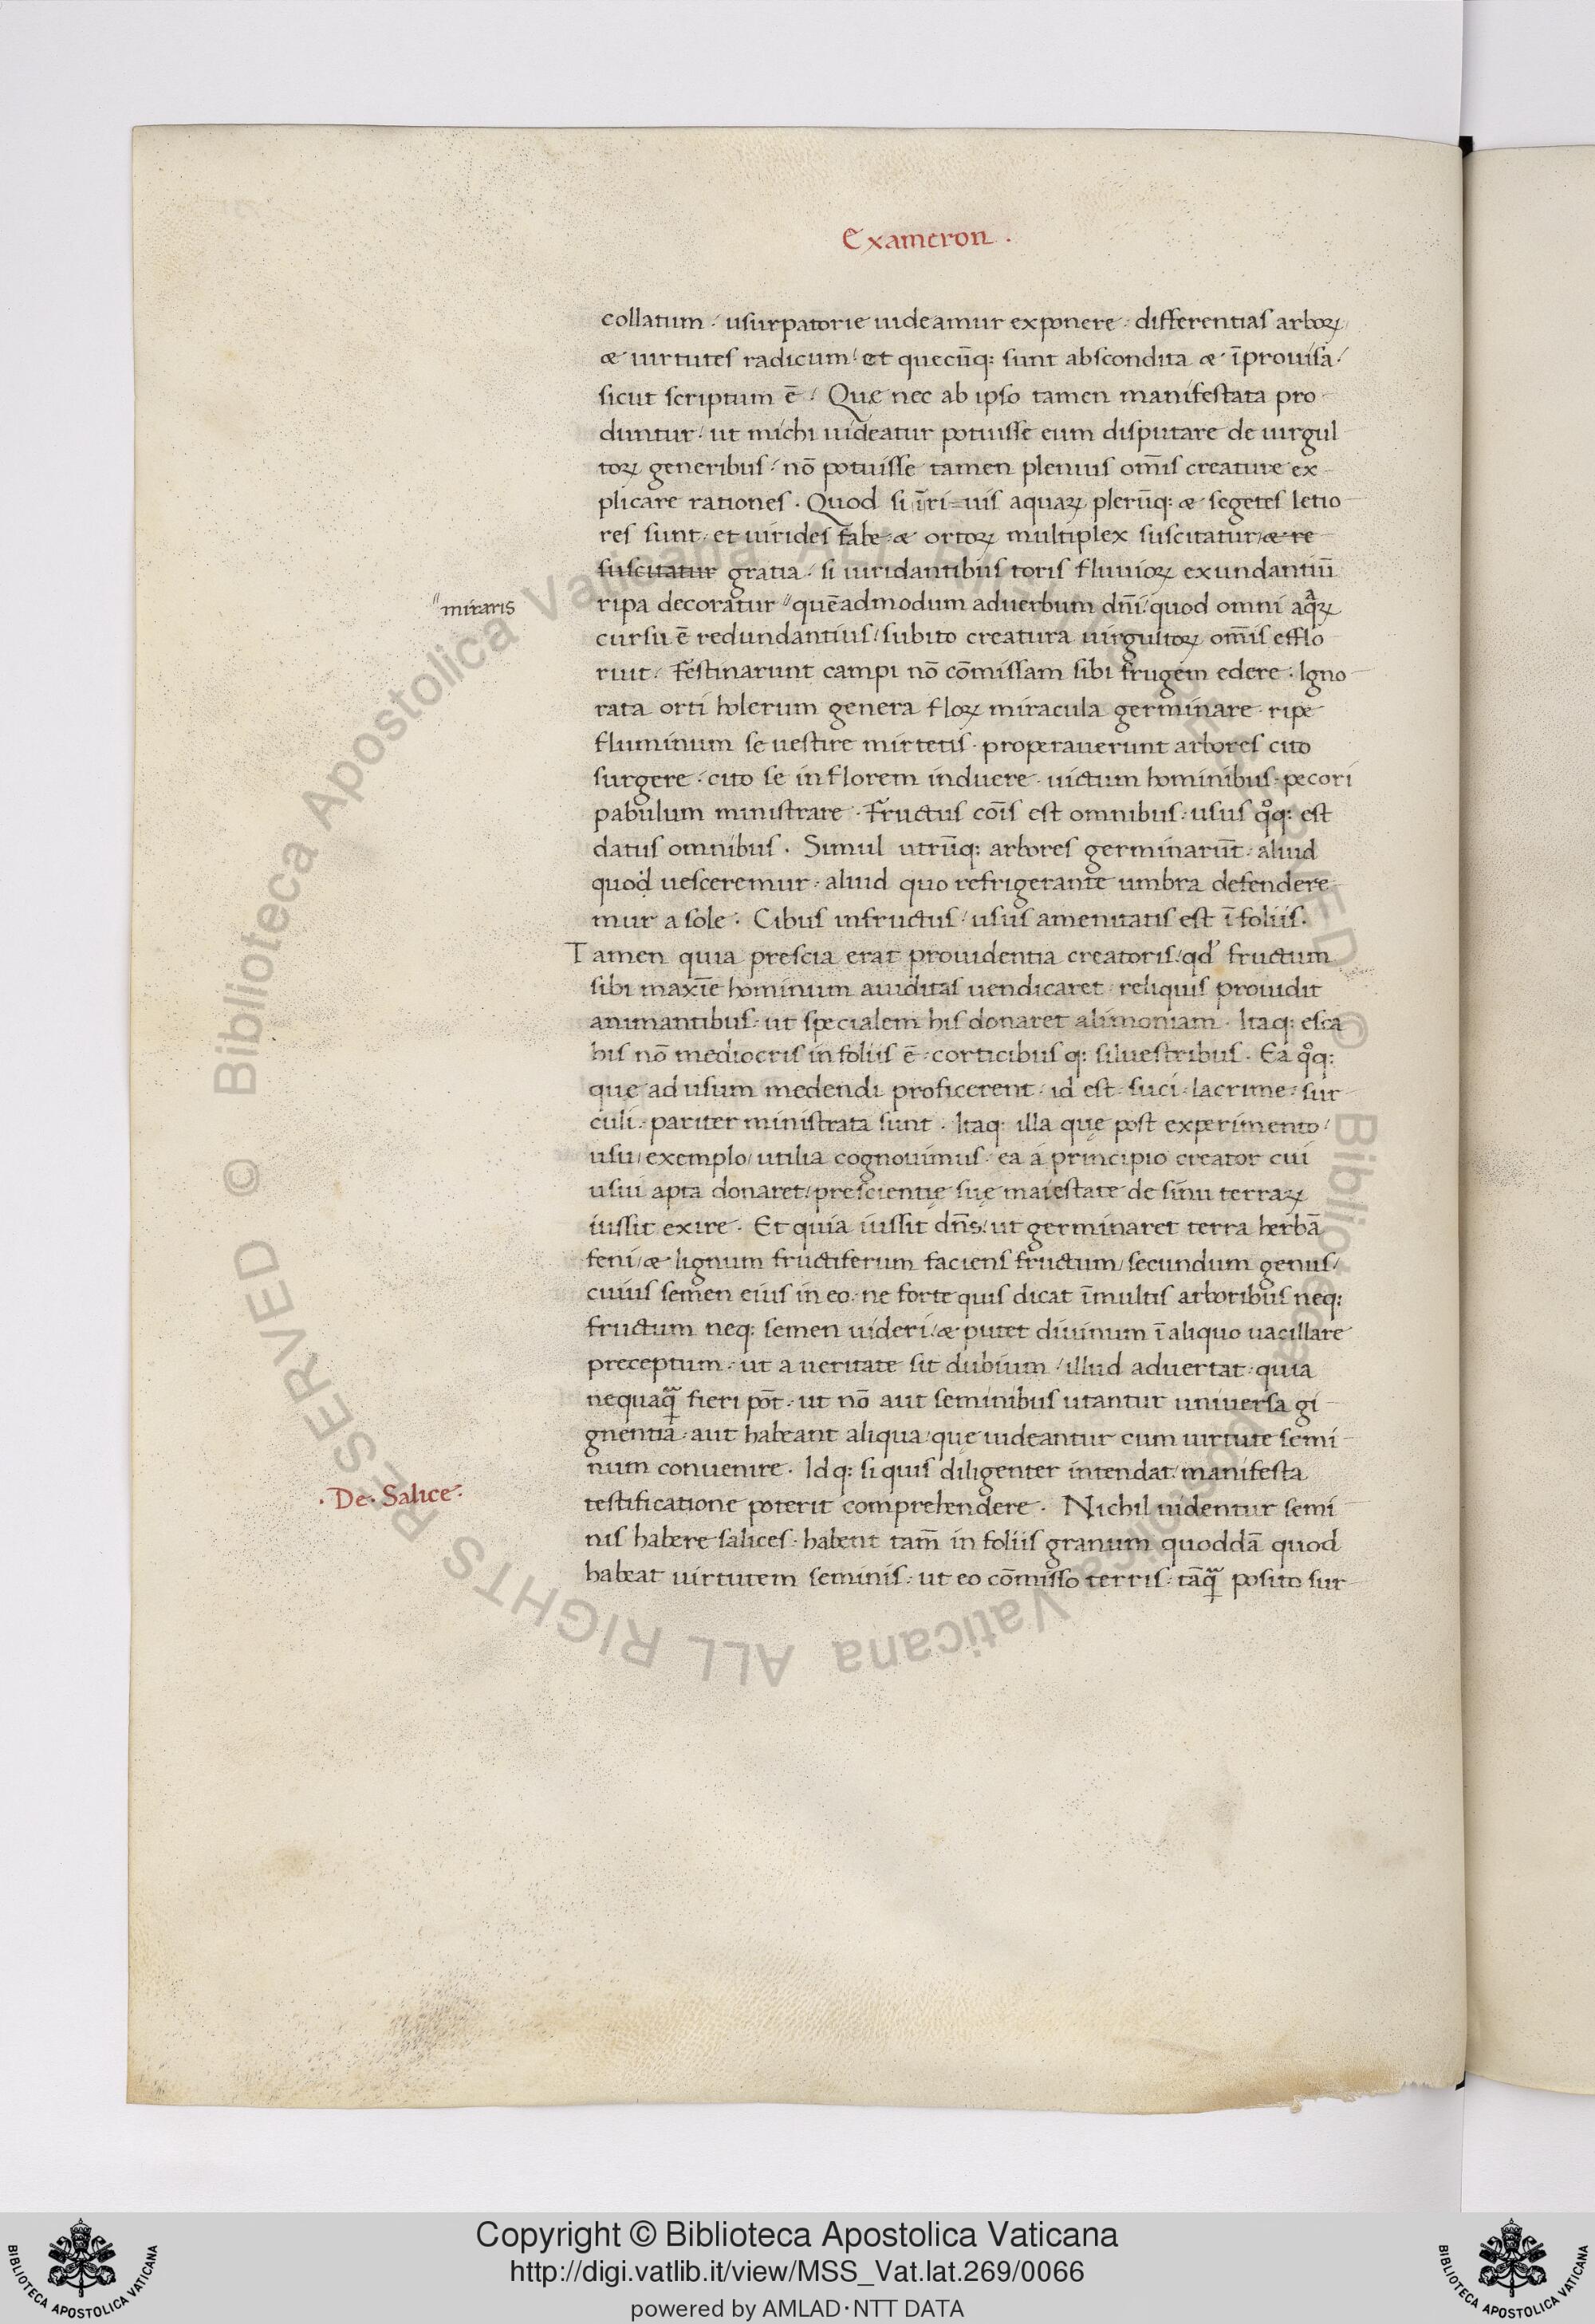 Exameron .
collatum · usurpatorie uideamur exponere · differentias arboꝝ
& uirtutes radicum / et quecūq: sunt abscondita & īprouisa /
sicut scriptum ē · Que nec ab ipso tamen manifestata pro-
duntur / ut michi uideatur potuisse eum disputare de uirgul
toꝝ generibus · nō potuisse tamen plenius om̄is creature ex-
plicare rationes . Quod si īri=uis aquaꝝ plerūq: & segetes letio-
res sunt · et uirides fabe & ortoꝝ multiplex suscitatur & re
suscitatur gratia · si uiridantibus toris fluuioꝝ exundantiū
"miraris
ripa decoratur " quēadmodum aduerbum dn̄i / quod omni aqᷓꝝ
cursu ē redundantius / subito creatura uirgultoꝝ om̄is efflo-
ruit · Festinarunt campi nō cōmissam sibi frugem edere · Igno-
rata orti holerum genera floꝝ miracula germinare · ripe
fluminum se uestire mirtetis · properauerunt arbores cito
surgere · cito se in florem induere · uictum hominibus · pecori
pabulum ministrare · Fructus cōis est omnibus · usus qͦq: est
datus omnibus . Simul utrūq: arbores germinarūt · aliud
quod uesceremur · aliud quo refrigerante umbra defendere-
mur a sole · Cibus infructus / usus amenitatis est ī foliis.
Tamen quia prescia erat prouidentia creatoris / qd' fructum
sibi maxīe hominum auiditas uendicaret · reliquis prouidit
animantibus · ut specialem his donaret alimoniam · Itaq: esca
his nō mediocris in foliis ē · corticibus q: siluestribus . Ea qͦq:
quę ad usum medendi proficerent · id est · suci · lacrime · sur-
culi · pariter ministrata sunt . Itaq: illa quę post experimento /
usu / exemplo / utilia cognouimus · ea á principio creator cui
usui apta donaret / prescientię suę maiestate de sinu terraꝝ
iussit exire . Et quia iussit dn̄s / ut germinaret terra herbā
feni / & lignum fructiferum faciens fructum / secundum genus /
cuius semen eius in eo · ne forte quis dicat īmultis arboribus neq:
fructum neq: semen uideri / & putet diuinum ī aliquo uacillare
preceptum · ut a ueritate sit dubium / illud aduertat · quia
nequaqᷓ fieri pōt · ut nō aut seminibus utantur uniuersa gi-
gnentia · aut habeant aliqua / quę uideantur cum uirtute semi-
num conuenire . Idq: si quis diligenter intendat / manifesta
· De · Salice ·
testificatione poterit comprehendere . Nichil uidentur semi-
nis habere salices · habent tam̄ in foliis granum quoddā quod
habeat uirtutem seminis · ut eo cōmisso terris · tāqᷓ posito sur-
Copyright © Biblioteca Apostolica Vaticana
http://digi.vatlib.it/view/MSS_Vat.lat.269/0066
powered by AMLAD·NTT DATA
BIBLIOTECA APOSTOLICA VATICANA
BIBLIOTECA APOSTOLICA VATICANA
© Biblioteca Apostolica Vaticana ALL RIGHTS RESERVED
© Biblioteca Apostolica Vaticana ALL RIGHTS RESERVED